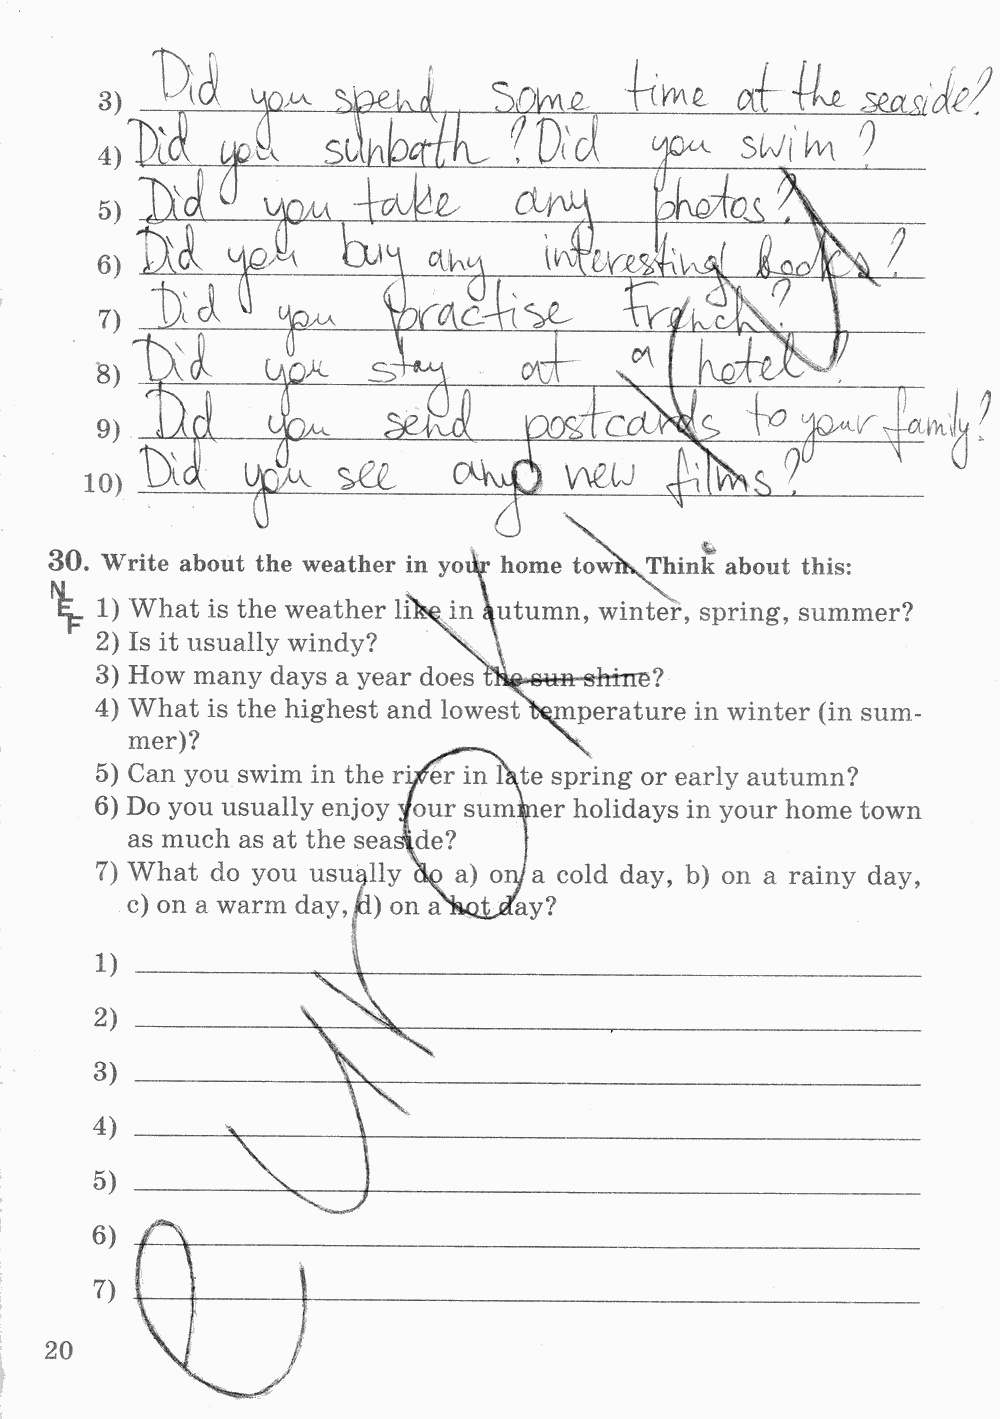 3) Did you spend some time at the seaside?
4) Did you sunbath? Did you swim?
5) Did you take any photos?
6) Did you buy any interesting books?
7) Did you practise French?
8) Did you stay at a hotel?
9) Did you send postcards to your family?
10) Did you see any new films?
30. Write about the weather in your home town. Think about this:
NEF
1) What is the weather like in autumn, winter, spring, summer?
2) Is it usually windy?
3) How many days a year does the sun shine?
4) What is the highest and lowest temperature in winter (in sum-
mer)?
5) Can you swim in the river in late spring or early autumn?
6) Do you usually enjoy your summer holidays in your home town
as much as at the seaside?
7) What do you usually do a) on a cold day, b) on a rainy day,
c) on a warm day, d) on a hot day?
1)
2)
3)
4)
5)
6)
7)
20